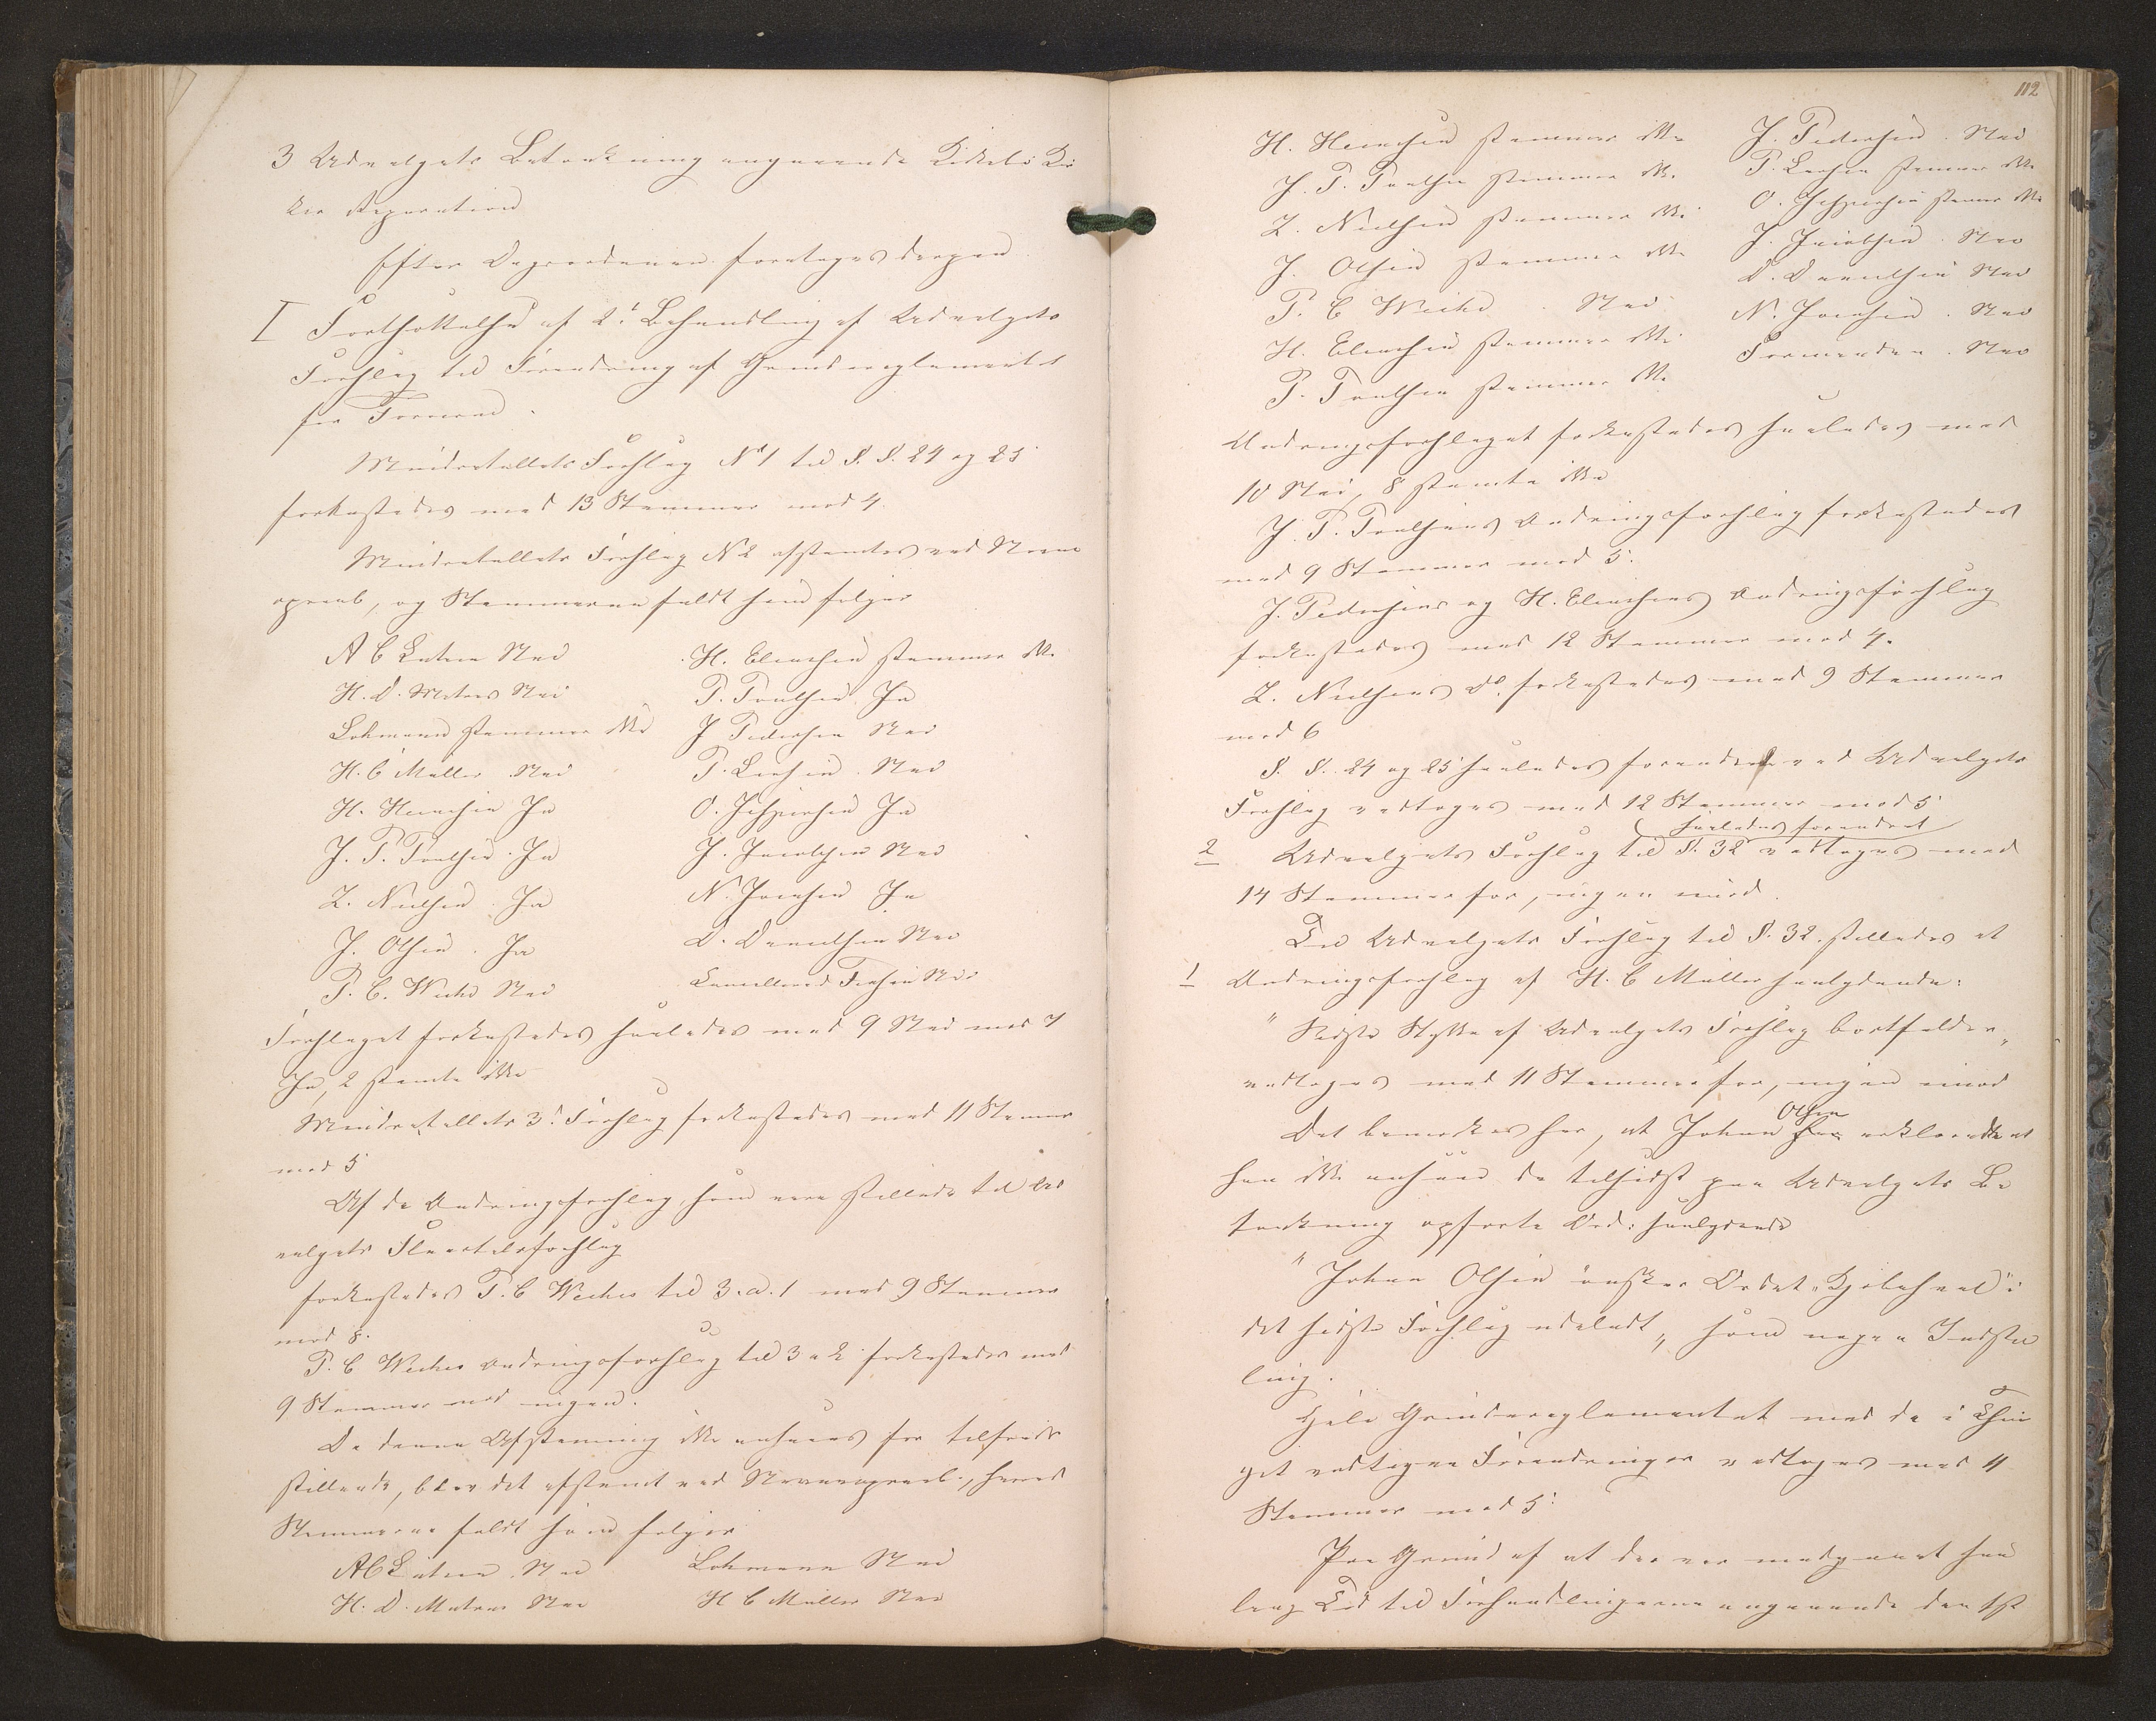 3 Udvalgets Betænkning angaaende Kirkebö Kir
kes Reparation
Efter Dagsordenen foretoges derpaa
I Fortsættelse af 2d Behandling af Udvalgets
Forslag til Forandring af Grundreglementet
for Færöerne.
Mindretallets Forslag No 1 til §. §. 24 og 25
forkastedes med 13 Stemmer mod 4.
Mindretallets Forslag N 2 afstemtes ved Navne
opraab, og Stemmerne faldt som følger
A C Lutzen Nei
H. D. Matras Nei
Lohmann stemmer ikke
H. C Müller Nei
H. Heinesen Ja
J. P. Poulsen Ja
Z. Nielsen Ja
J. Olsen. Ja
P. C. Weihe Nei
H. Eliasen stemmer ikke
P. Poulsen Ja
J Pedersen Nei
P. Larsen. Nei
O. Jespersen Ja
J. Jacobsen Nei
N. Joensen Ja
D. Danielsen Nei
Nei
Forslaget forkastedes saaledes med 9 Nei mod 7
Ja, 2 stemte ikke
Mindretallets 3d Forslag forkastedes med 11 Stemmer
mod 5
Af de Ændringsforslag, som vare stillede til Ud
valgets Flertalsforslag
forkastedes P. C Weihes til 3. a. 1 med 9 Stemmer
mod 8.
P. C Weihes Ændringsforslag til 3 a 2 forkastedes med
9 Stemmer mod ingen.
Da denne Afstemning ikke ansaaes for tilfreds
stillende, blev det afstemt ved Navneopraab, hvorved
Stemmerne faldt som følger
A C Lutzen Nei
H. D. Matras Nei
Lohmann Nei
H C Müller Nei
112
H. Heinesen stemmer ikke
J. P. Poulsen stemmer ikke
Z. Nielsen stemmer ikke
J. Olsen stemmer ikke
P. C Weihe . Nei
H. Eliasen stemmer ikke
P. Poulsen stemmer ikke
J. Pedersen . Nei
P. Larsen stemmer ikke
O. Jespersen stemmer ikke
J. Jacobsen . Nei
D. Danielsen Nei
N. Joensen . Nei
Formanden. Nei
Ændringsforslaget forkastedes saaledes med
10 Nei, 8 stemte ikke
J. P. Poulsens Ændringsforslag forkastedes
med 9 Stemmer mod 5.
J. Pedersens og H. Eliasens Ændringsforslag
forkastedes med 12 Stemmer mod 4.
Z. Nielsens do. forkastedes med 9 Stemmer
mod 6
§. §. 24 og 25 saaledes forandrede ved Udvalgets
Forslag vedtoges med 12 Stemmer mod 5
saaledes forandret
2 Udvalgets Forslag til §. 32 vedtoges med
14 Stemmer for, ingen imod.
Til Udvalgets Forslag til §. 32. stilledes et
1 Ændringsforslag af H. C Müller saalydende:
"Sidste Stykke af Udvalgets Forslag bortfalder„
vedtoges med 11 Stemmer for, ingen imod
Det bemærkes her, at Johan Olsen erklærede at
han ikke ansaae de tilsidst paa Udvalgets Be
tænkning opførte Ord: saalydende
"Johan Olsen ønsker Ordet „ " i
det sidste Forslag udeladt„ som nogen Indstil
ling.
Hele Grundreglementet med de i Thin
get vedtagne Forandringer vedtoges med 11
Stemmer mod 5.
Paa Grund af at der var medgaaet saa
lang Tid til Forhandlingerne angaaende den 1ste